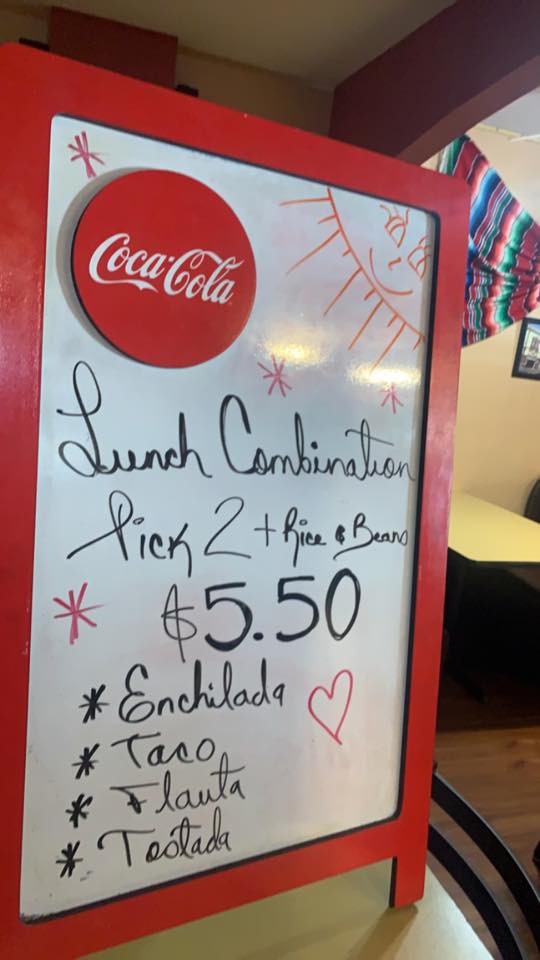 Coca-Cola
Lunch Combination
Pick 2 + Rice & Beans
$5.50
* Enchilada
* Taco
* Flauta
* Tostada